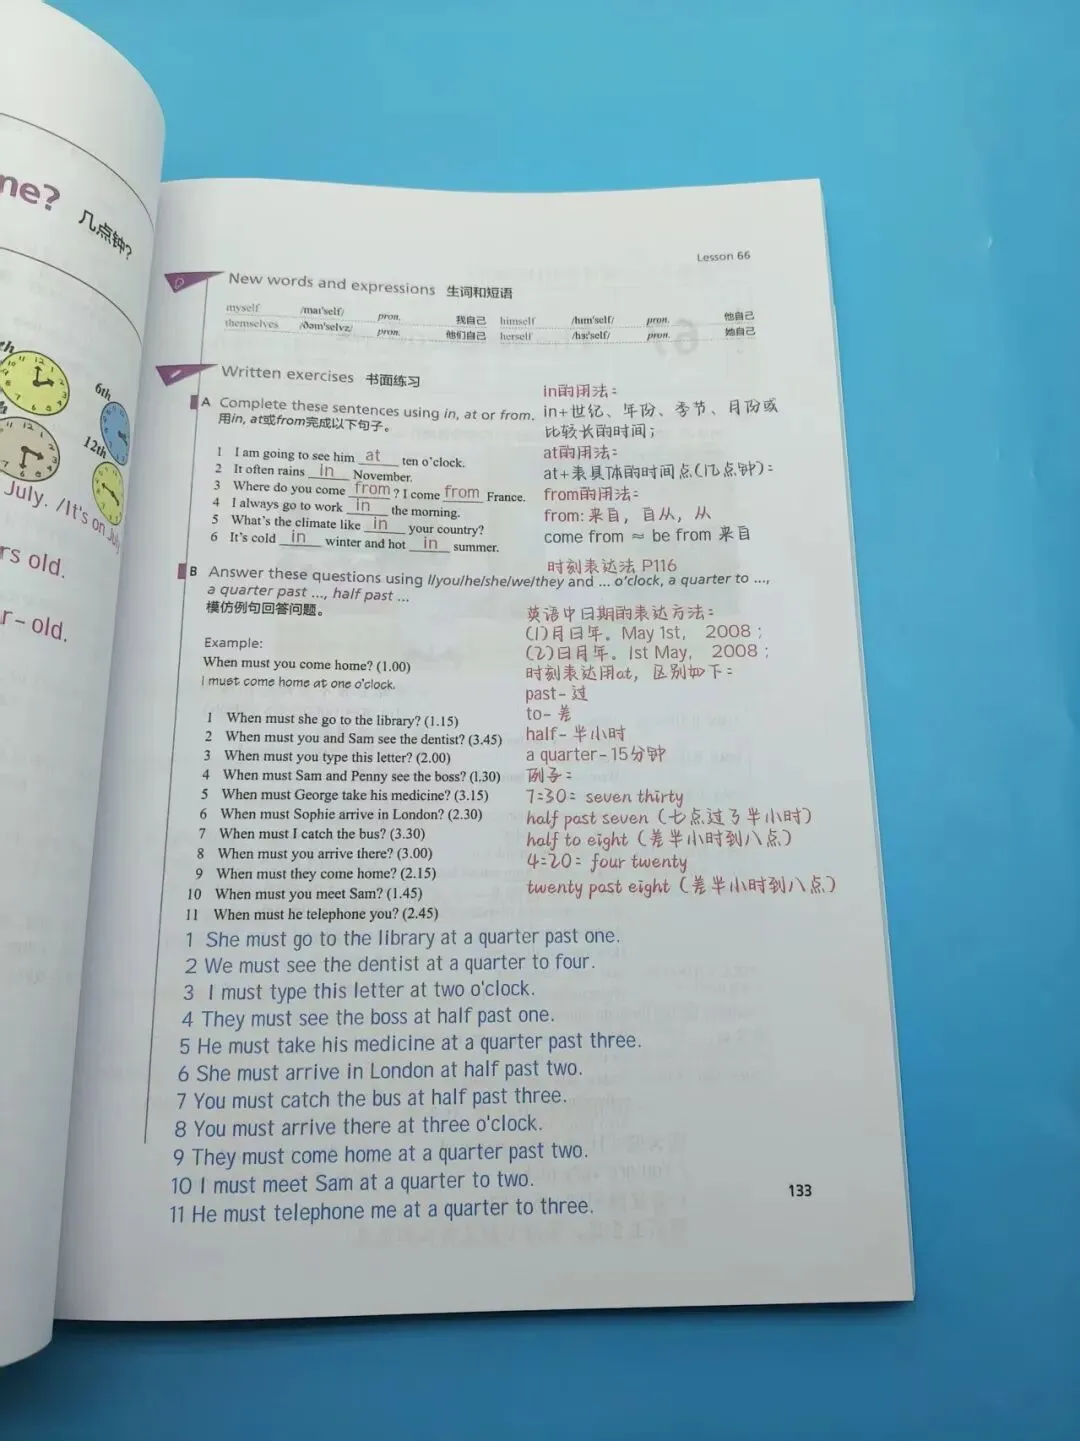 ne? 几点钟?
6th
12th
July. /It's on July
rs old.
r-old.
Lesson 66
New words and expressions 生词和短语
myself /maɪ'self/ pron. 我自己 himself /hɪm'self/ pron. 他自己
themselves /ðəm'selvz/ pron. 他们自己 herself /hɜː'self/ pron. 她自己
Written exercises 书面练习
A Complete these sentences using in, at or from.
用in, at或from完成以下句子。
1 I am going to see him at ten o'clock.
2 It often rains in November.
3 Where do you come from? I come from France.
4 I always go to work in the morning.
5 What's the climate like in your country?
6 It's cold in winter and hot in summer.
in的用法:
in+世纪、年份、季节、月份或
比较长的时间;
at的用法:
at+表具体的时间点(几点钟):
from的用法:
from: 来自, 自从, 从
come from ≈ be from 来自
时刻表达法 P116
B Answer these questions using I/you/he/she/we/they and ... o'clock, a quarter to ...,
a quarter past ..., half past ...
模仿例句回答问题。
Example:
When must you come home? (1.00)
I must come home at one o'clock.
1 When must she go to the library? (1.15)
2 When must you and Sam see the dentist? (3.45)
3 When must you type this letter? (2.00)
4 When must Sam and Penny see the boss? (1.30)
5 When must George take his medicine? (3.15)
6 When must Sophie arrive in London? (2.30)
7 When must I catch the bus? (3.30)
8 When must you arrive there? (3.00)
9 When must they come home? (2.15)
10 When must you meet Sam? (1.45)
11 When must he telephone you? (2.45)
英语中日期的表达方法:
(1)月日年。May 1st, 2008;
(2)日月年。1st May, 2008;
时刻表达用at, 区别如下:
past-过
to-差
half-半小时
a quarter-15分钟
例子:
7:30: seven thirty
half past seven (七点过了半小时)
half to eight (差半小时到八点)
4:20: four twenty
twenty past eight (差半小时到八点)
1 She must go to the library at a quarter past one.
2 We must see the dentist at a quarter to four.
3 I must type this letter at two o'clock.
4 They must see the boss at half past one.
5 He must take his medicine at a quarter past three.
6 She must arrive in London at half past two.
7 You must catch the bus at half past three.
8 You must arrive there at three o'clock.
9 They must come home at a quarter past two.
10 I must meet Sam at a quarter to two.
11 He must telephone me at a quarter to three.
133